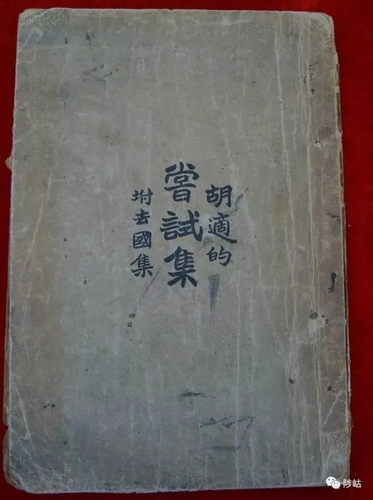 胡適的
嘗試集
坿去國集
秒岵